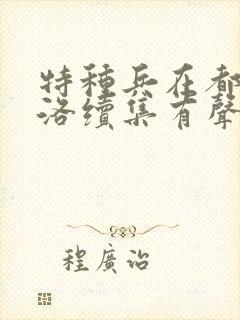 特種兵在都
洛續集有聲
程廣治